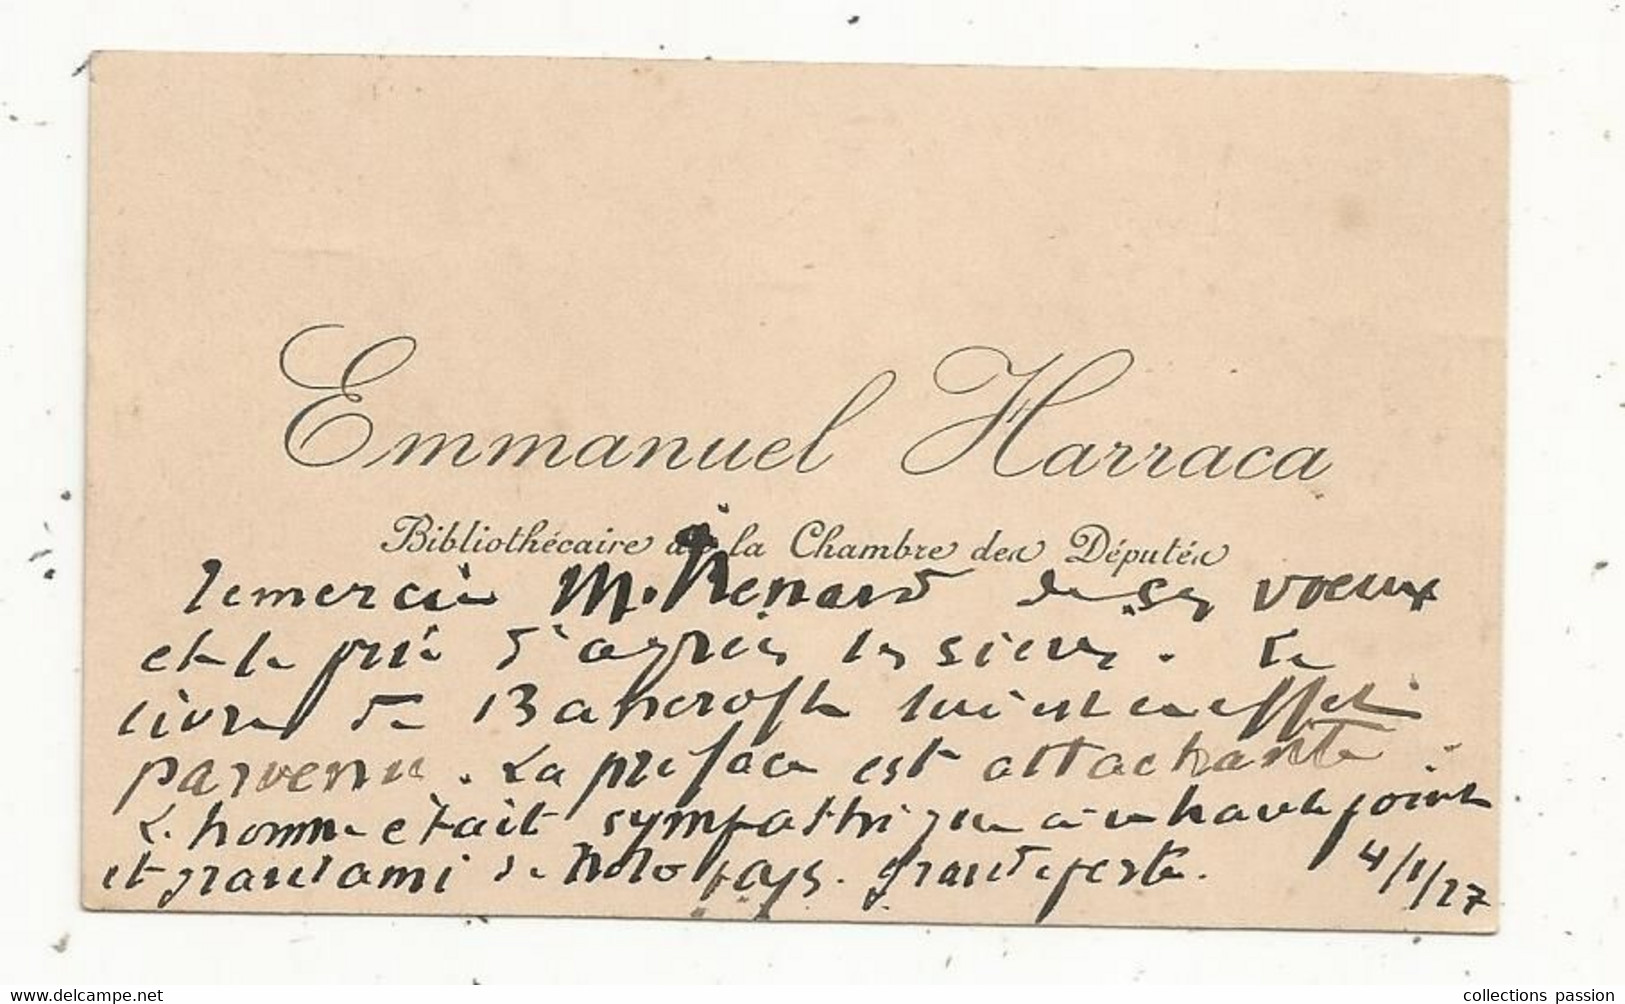 Emmanuel Harraca
Bibliothécaire de la Chambre des Députés
remercie M. Renard de ses vœux
et le prie d'agréer les siens. Le
livre de Bancroft lui est en effet
parvenu. La préface est attachante.
L'homme était sympathique au plus haut point
et grand ami de notre pays. Grande perte. 4/1/27
collections passion